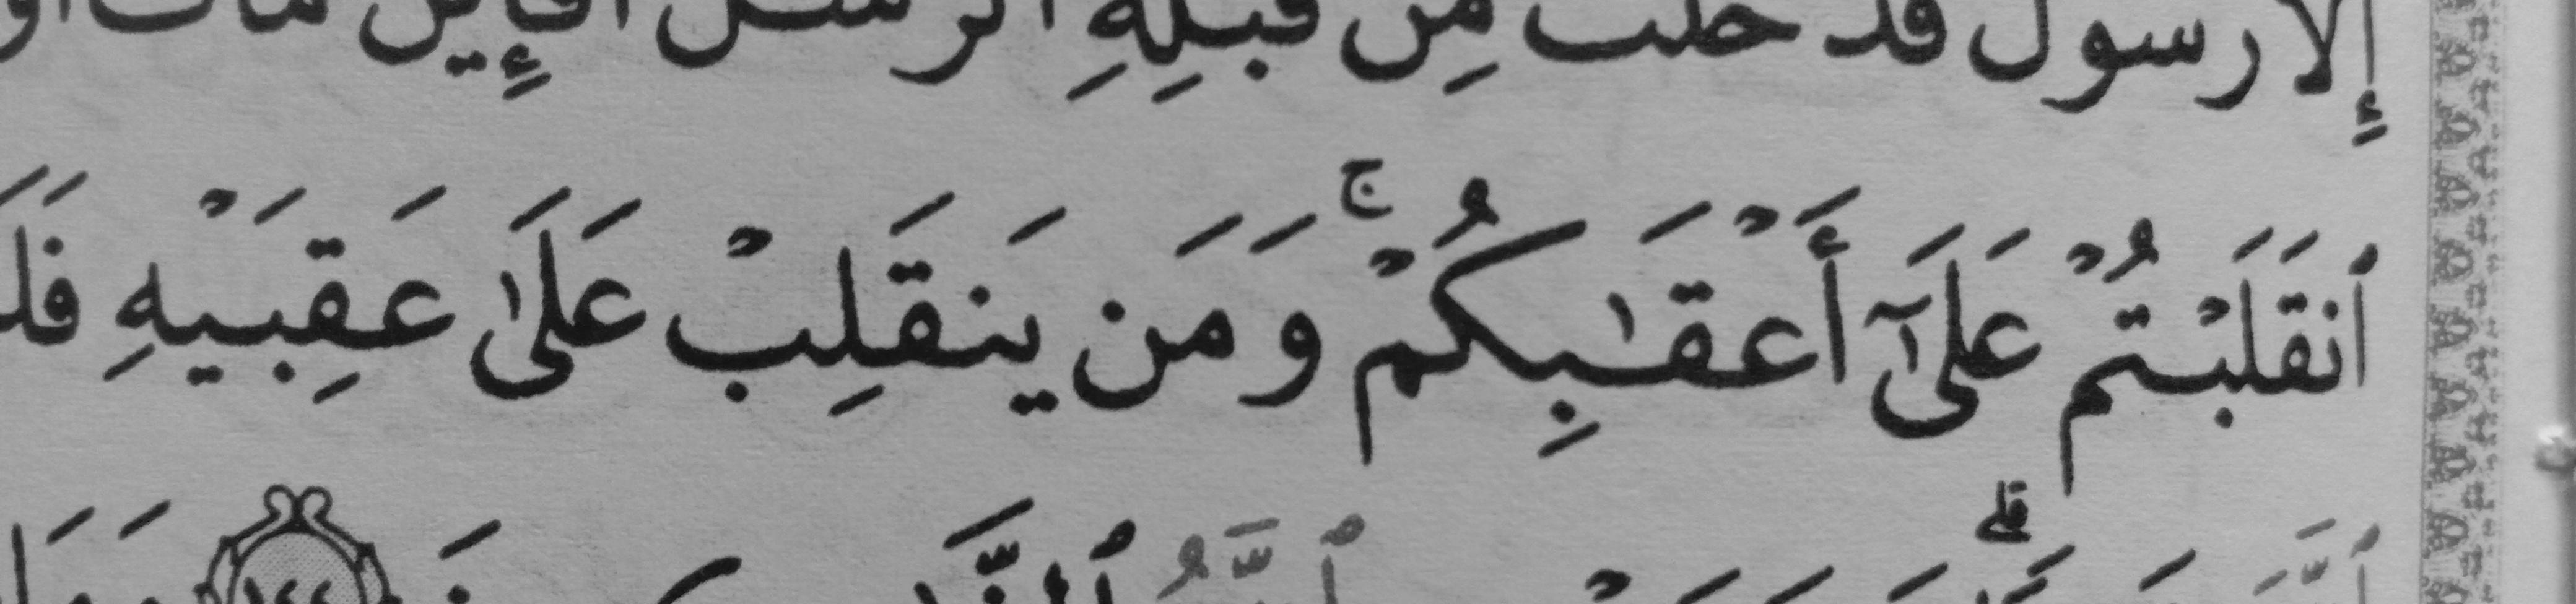 إلا رسول قد خلت من قبله الرسل أفإين مات أو
ٱنقَلَبْتُمْ عَلَىٰٓ أَعْقَـٰبِكُمْ ۚ وَمَن يَنقَلِبْ عَلَىٰ عَقِبَيْهِ فَلَ
ٱللَّهُ ٱلشَّـ ١٤٤